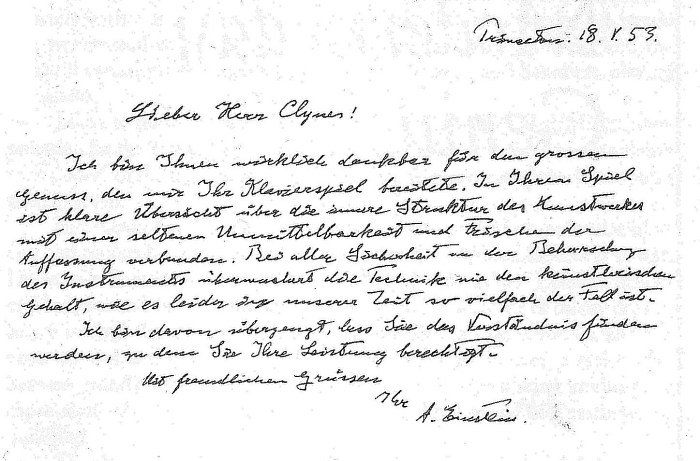 Princeton. 18. V. 53.
Lieber Herr Clynes!
Ich bin Ihnen wirklich dankbar für den grossen
Genuss, den mir Ihr Klavierspiel bereitete. In Ihrem Spiel
ist klare Übersicht über die innere Struktur des Kunstwerkes
mit einer seltenen Unmittelbarkeit und Frische der
Auffassung verbunden. Bei aller Sicherheit in der Beherrschung
des Instruments übermuchert die Technik nie den künstlerischen
Gehalt, wie es leider in unserer Zeit so vielfach der Fall ist.
Ich bin davon überzeugt, dass Sie das Verständnis finden
werden, zu dem Sie Ihre Leistung berechtigt.
Mit freundlichen Grüssen
Ihr
A. Einstein.